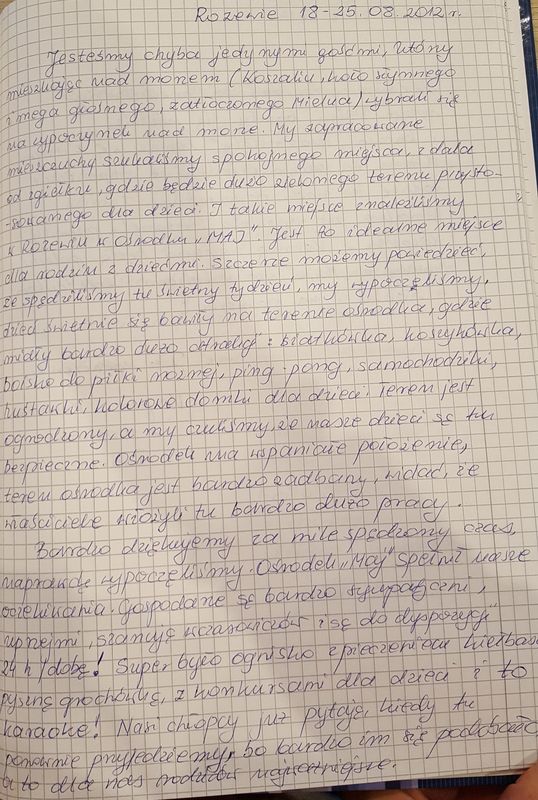 Rozewie 18-25.08.2012 r.
Jesteśmy chyba jedynymi gośćmi, którzy
mieszkając nad morzem (Koszalin, koło słynnego
i mega głośnego, zatłoczonego Mielna) wybrali się
na wypoczynek nad morze. My zapracowane
mieszczuchy szukaliśmy spokojnego miejsca, z dala
od zgiełku, gdzie będzie dużo zielonego terenu przysto-
-sowanego dla dzieci. I takie miejsce znaleźliśmy
w Rozewiu w Ośrodku „MAJ". Jest to idealne miejsce
dla rodzin z dziećmi. Szczerze możemy powiedzieć,
że spędziliśmy tu świetny tydzień, my wypoczęliśmy,
dzieci świetnie się bawiły na terenie ośrodka, gdzie
miały bardzo dużo atrakcji: siatkówka, koszykówka,
boisko do piłki nożnej, ping-pong, samochodziki,
huśtawki, kolorowe domki dla dzieci. Teren jest
ogrodzony, a my czuliśmy, że nasze dzieci są tu
bezpieczne. Ośrodek ma wspaniałe położenie,
teren ośrodka jest bardzo zadbany, widać, że
właściciele włożyli tu bardzo dużo pracy.
Bardzo dziękujemy za mile spędzony czas,
naprawdę wypoczęliśmy. Ośrodek „Maj" spełnił nasze
oczekiwania. Gospodarze są bardzo sympatyczni,
uprzejmi, szanują wczasowiczów i są do dyspozycji
24 h/dobę! Super było ognisko z pieczeniem kiełbas
pyszną grochówką, z konkursami dla dzieci i to
karaoke! Nasi chłopcy już pytają, kiedy tu
ponownie przyjedziemy, bo bardzo im się podobało,
a to dla nas rodziców najważniejsze.